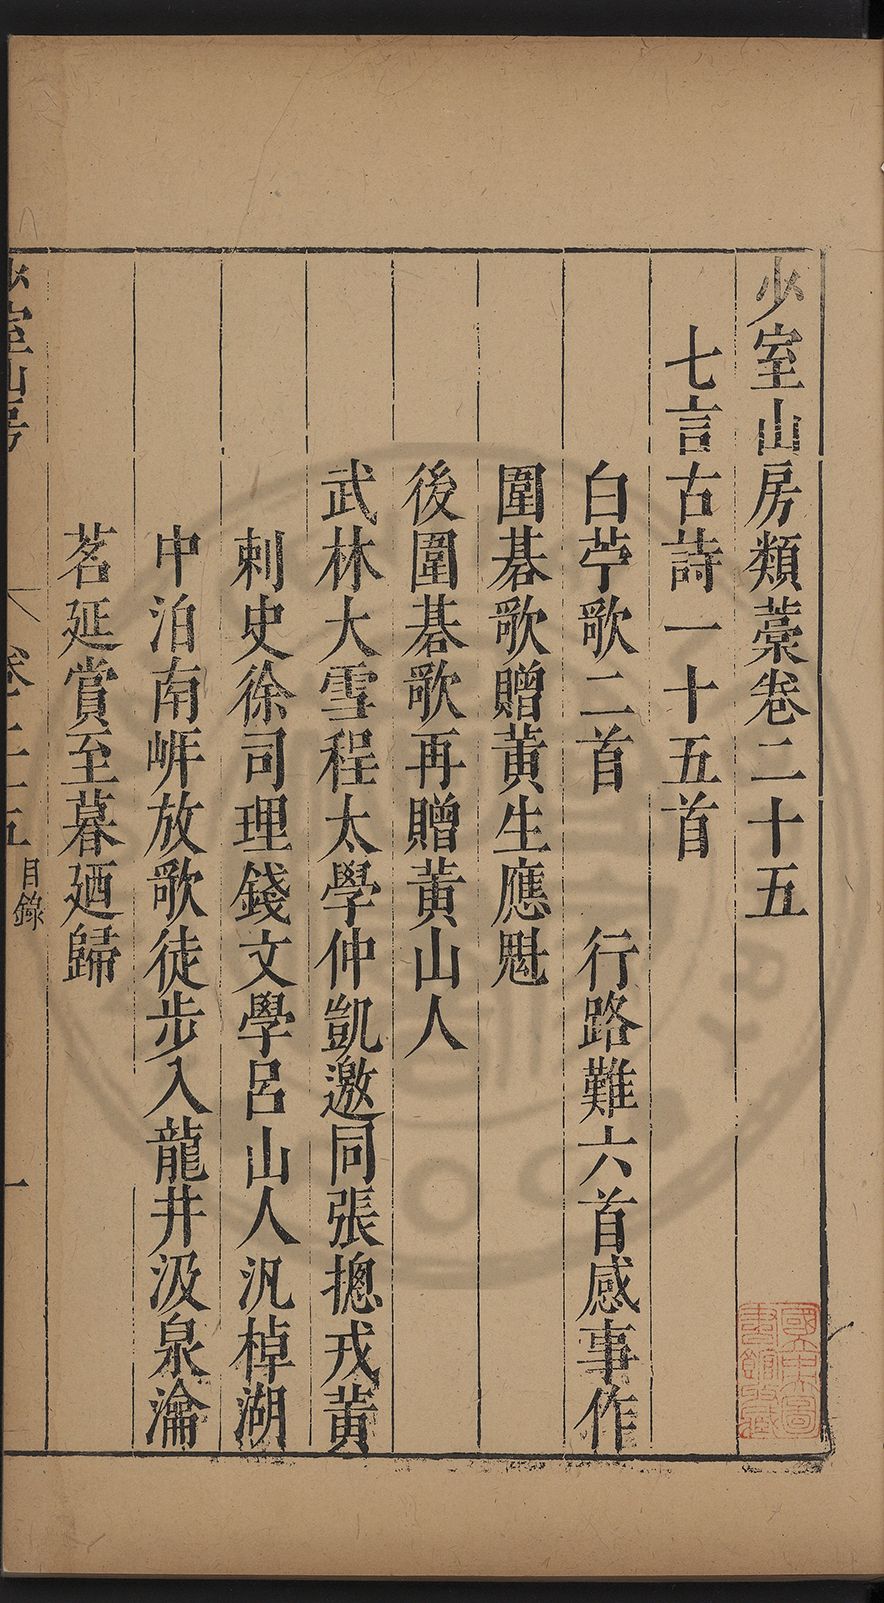 少室山房類藁卷二十五
七言古詩一十五首
白苧歌二首 行路難六首感事作
圍碁歌贈黄生應魁
後圍碁歌再贈黄山人
武林大雪程太學仲凱邀同張摠戎黄
刺史徐司理錢文學呂山人汎棹湖
中泊南屛放歌徒步入龍井汲泉瀹
茗延賞至暮廼歸
少室山房 卷二十五 目錄 一
國立中央圖書館收藏